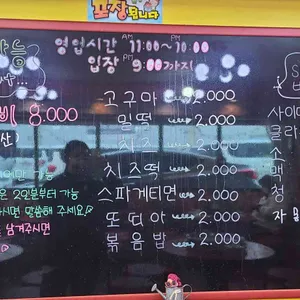 포장됩니다
영업시간 AM 11:00~PM 10:00
입장 PM 9:00까지
8.000
고구마 2.000
밀떡 2.000
치즈 2.000
치즈떡 2.000
스파게티면 2.000
또띠아 2.000
볶음밥 2.000
2인분부터 가능
말씀해 주세요
남겨주시면
사이
클라
소
맥
청
자몽